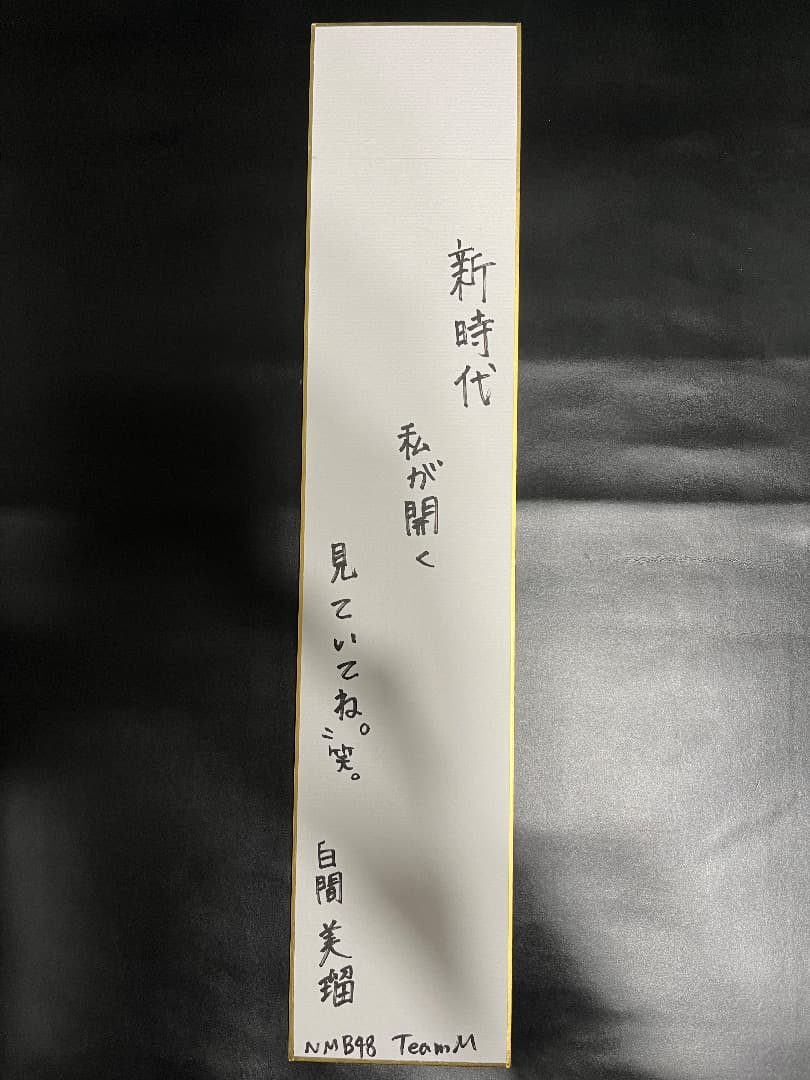 新時代
私が開く
見ていてね。
笑。
白間美瑠
NMB48 TeamM